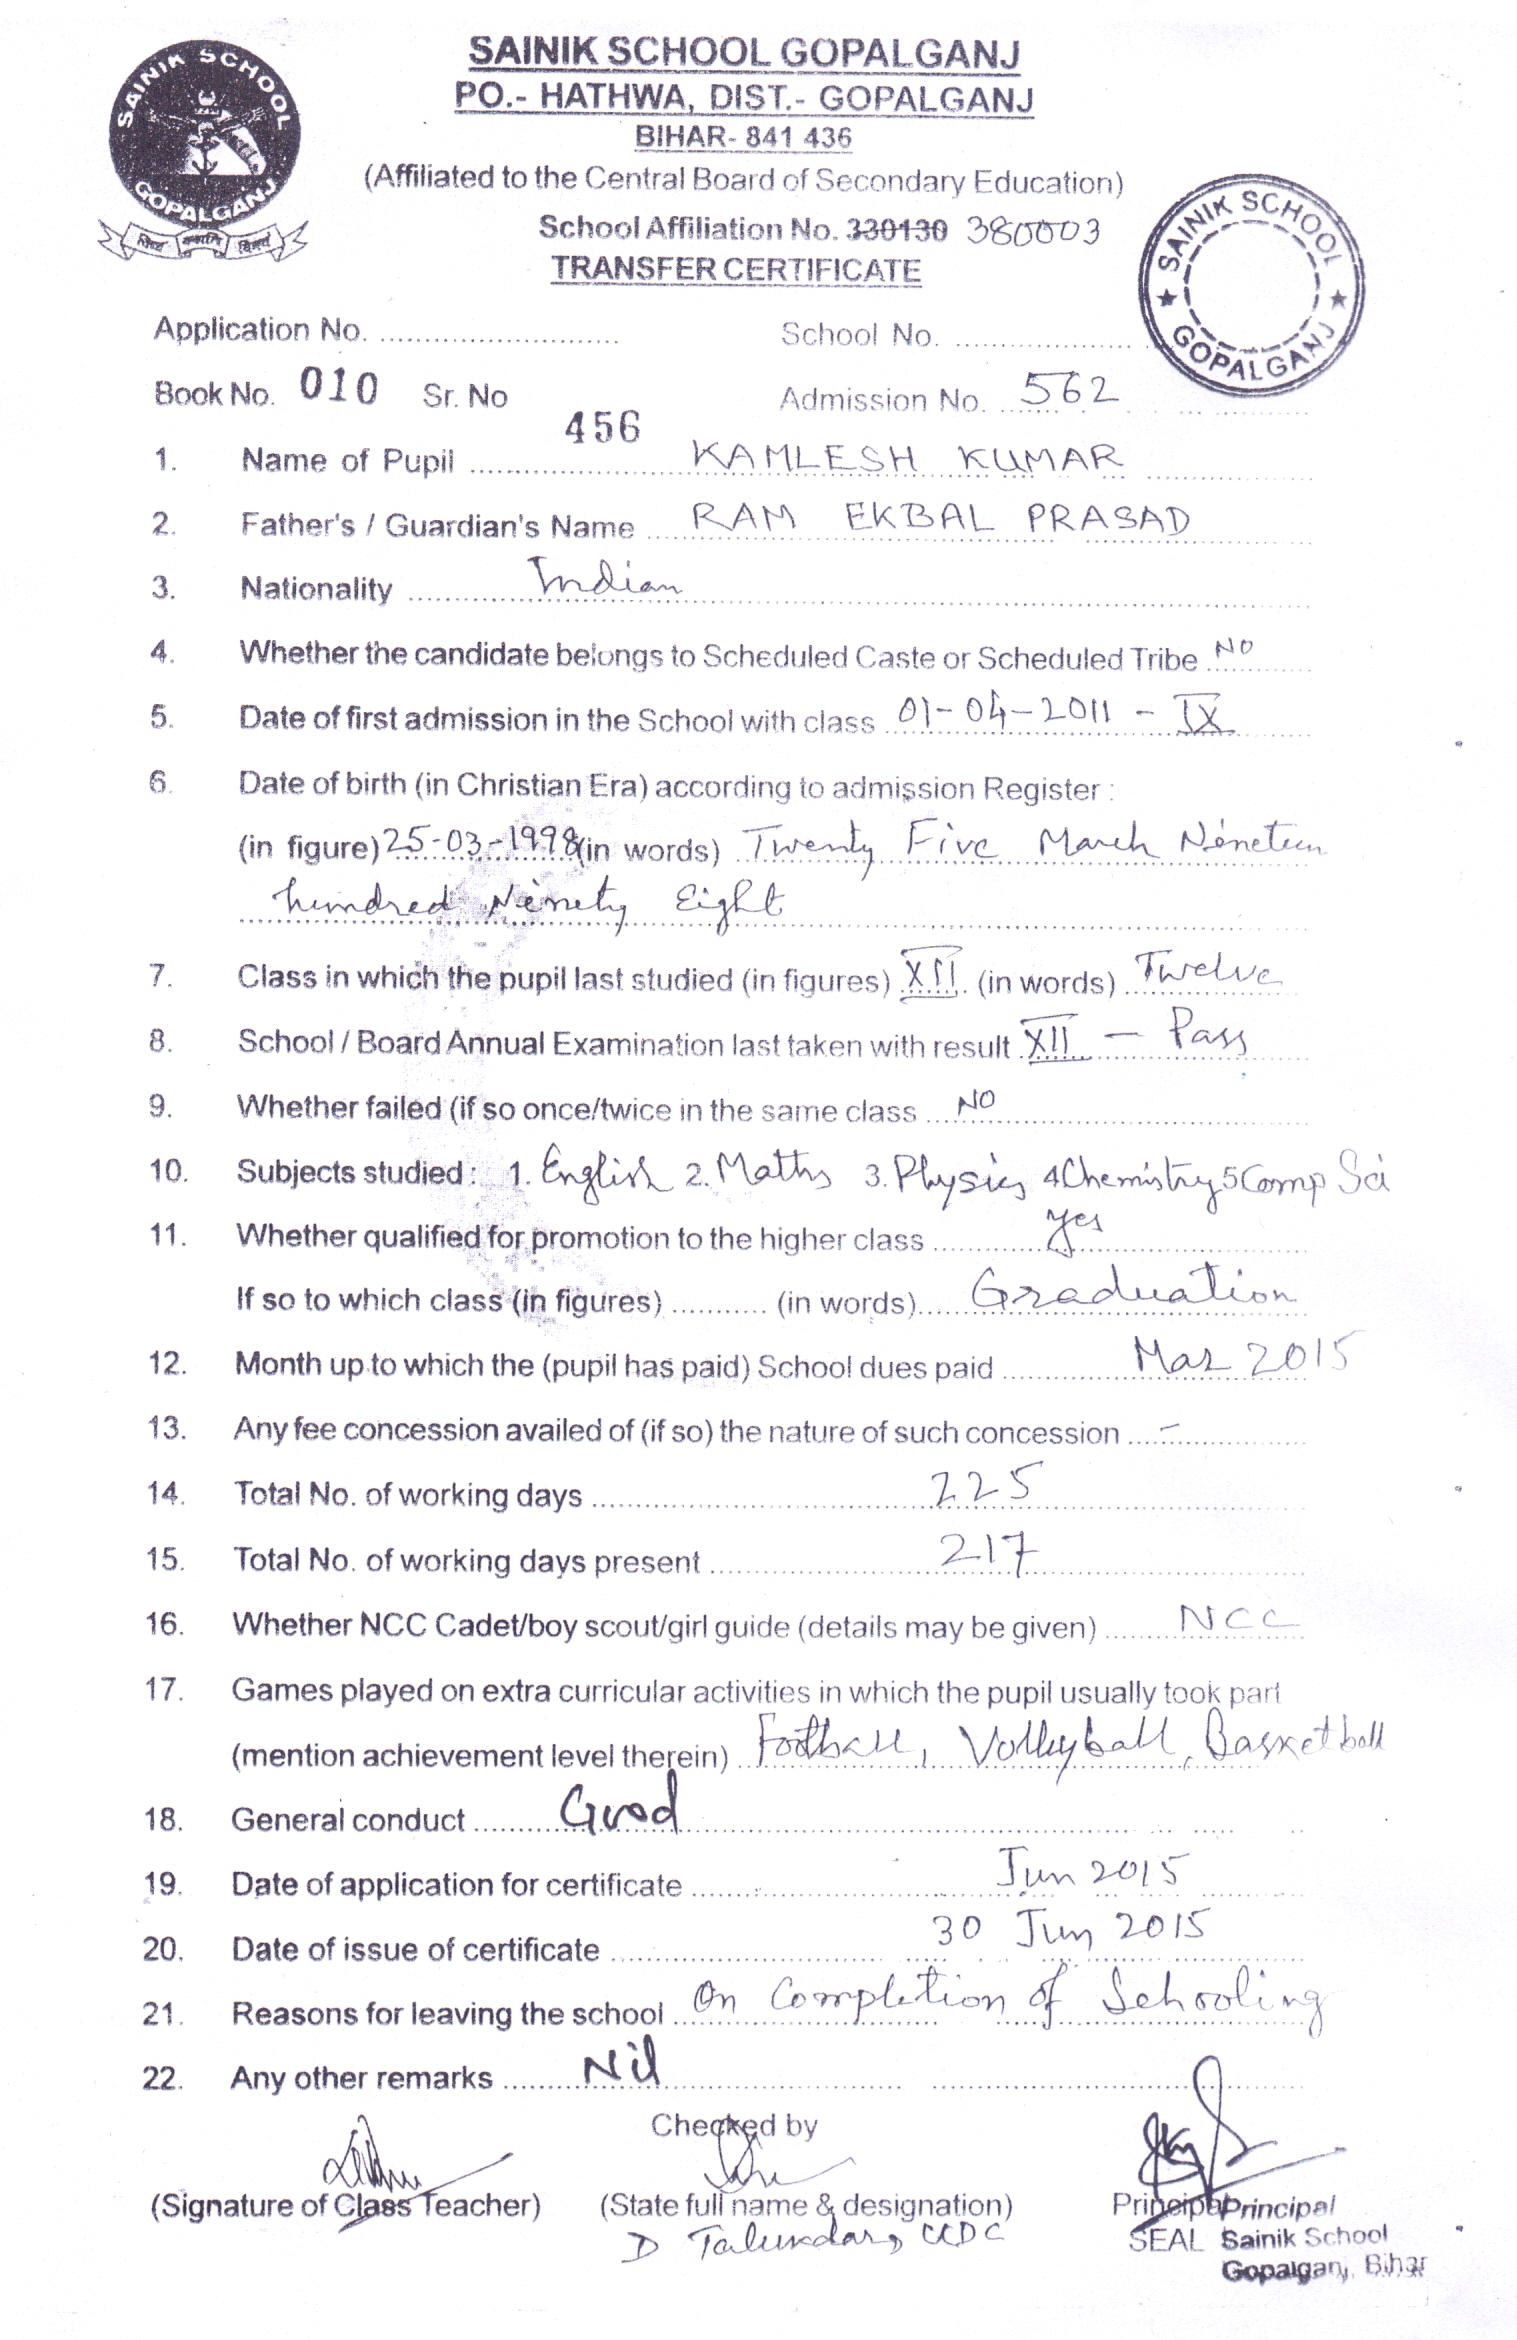 SAINIK SCHOOL GOPALGANJ
PO.- HATHWA, DIST.- GOPALGANJ
BIHAR- 841 436
(Affiliated to the Central Board of Secondary Education)
School Affiliation No. 330130 380003
TRANSFER CERTIFICATE
SAINIK SCHOOL
GOPALGANJ
SAINIK SCHOOL
GOPALGANJ
Application No. School No.
Book No. 010 Sr. No 456 Admission No. 562
1. Name of Pupil KAMLESH KUMAR
2. Father's / Guardian's Name RAM EKBAL PRASAD
3. Nationality Indian
4. Whether the candidate belongs to Scheduled Caste or Scheduled Tribe NO
5. Date of first admission in the School with class 01-04-2011 - IX
6. Date of birth (in Christian Era) according to admission Register :
(in figure) 25-03-1998 (in words) Twenty Five March Nineteen
hundred Ninety Eight
7. Class in which the pupil last studied (in figures) XII (in words) Twelve
8. School / Board Annual Examination last taken with result XII - Pass
9. Whether failed (if so once/twice in the same class NO
10. Subjects studied : 1. English 2. Maths 3. Physics 4 Chemistry 5 Comp Sci
11. Whether qualified for promotion to the higher class Yes
If so to which class (in figures) (in words) Graduation
12. Month up to which the (pupil has paid) School dues paid Mar 2015
13. Any fee concession availed of (if so) the nature of such concession -
14. Total No. of working days 225
15. Total No. of working days present 217
16. Whether NCC Cadet/boy scout/girl guide (details may be given) NCC
17. Games played on extra curricular activities in which the pupil usually took part
(mention achievement level therein) Football, Volleyball, Basketball
18. General conduct Good
19. Date of application for certificate Jun 2015
20. Date of issue of certificate 30 Jun 2015
21. Reasons for leaving the school On Completion of Schooling
22. Any other remarks Nil
Checked by
(Signature of Class Teacher) (State full name & designation) Principal Principal
D Talukdar, SEAL Sainik School
Gopalganj, Bihar